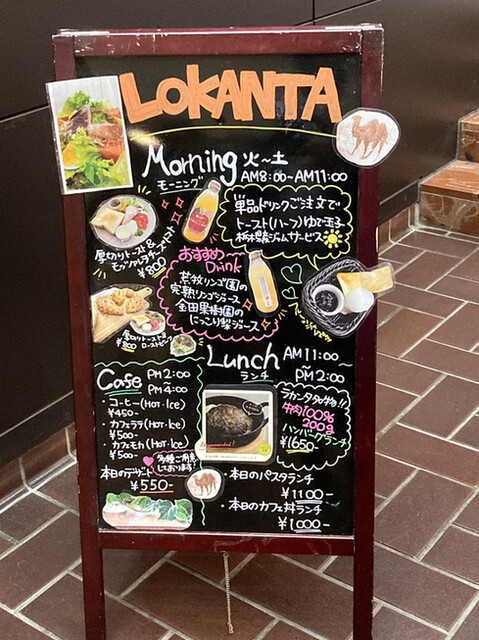 LOKANTA
Morning 火~土
モーニング AM8:00~AM11:00
単品ドリンクご注文で
トースト(ハーフ)ゆで玉子
ジャムサービス
厚切りトースト&
モッツァレラチーズ
¥800
おすすめ
Drink
果牧リンゴ園の
完熟リンゴジュース
金田果樹園の
にっこり梨ジュース
厚切りトースト&
¥800 ローストビーフ
Lunch AM11:00
ランチ ~PM2:00
Cafe PM2:00
PM4:00
・コーヒー(HOT・Ice)
¥450-
・カフェラテ(HOT・Ice)
¥500-
・カフェモカ(HOT・Ice)
¥500-
多種ご用意
しております!
本日のデザート
¥550-
ラカンタ名物!!
牛肉100%
200g
ハンバーグランチ
¥1650-
・本日のパスタランチ
¥1100-
・本日のカフェ丼ランチ
¥1000-